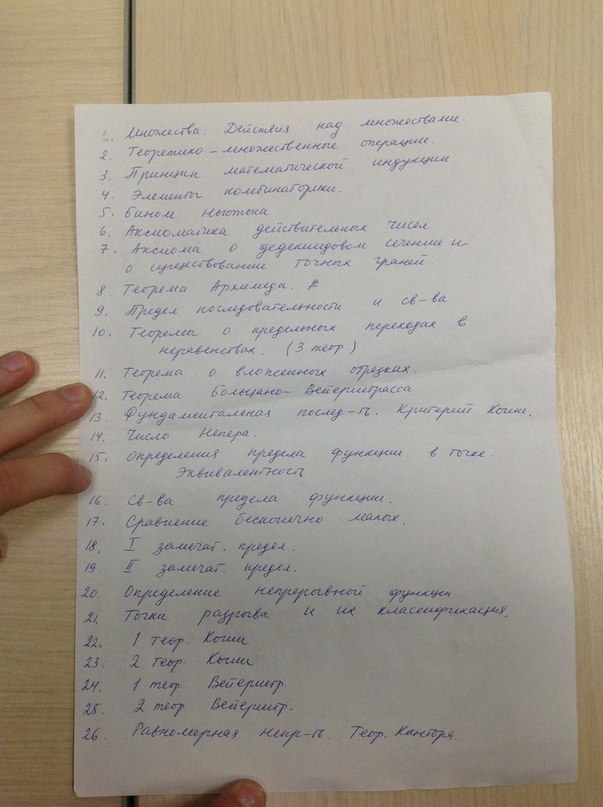 1. Множества. Действия над множествами.
2. Теоретико-множественные операции.
3. Принцип математической индукции.
4. Элементы комбинаторики.
5. Бином Ньютона
6. Аксиоматика действительных чисел
7. Аксиома о дедекиндовом сечение и
о существование точных граней.
8. Теорема Архимеда.
9. Предел последовательности и св-ва
10. Теоремы о предельных переходах в
неравенствах. (3 теор)
11. Теорема о вложенных отрезках.
12. Теорема Больцано-Вейерштрасса
13. Фундаментальная послед-ть. Критерий Коши.
14. Число Непера.
15. Определения предела функции в точке.
Эквивалентность
16. Св-ва придела функции.
17. Сравнение бесконечно малых.
18. I замечат. предел.
19. II замечат. предел.
20. Определение непрерывной функции
21. Точки разрыва и их классификация.
22. 1 теор. Коши
23. 2 теор. Коши
24. 1 теор. Вейерштр.
25. 2 теор Вейерштр.
26. Равномерная непр-ть. Теор. Кантора.